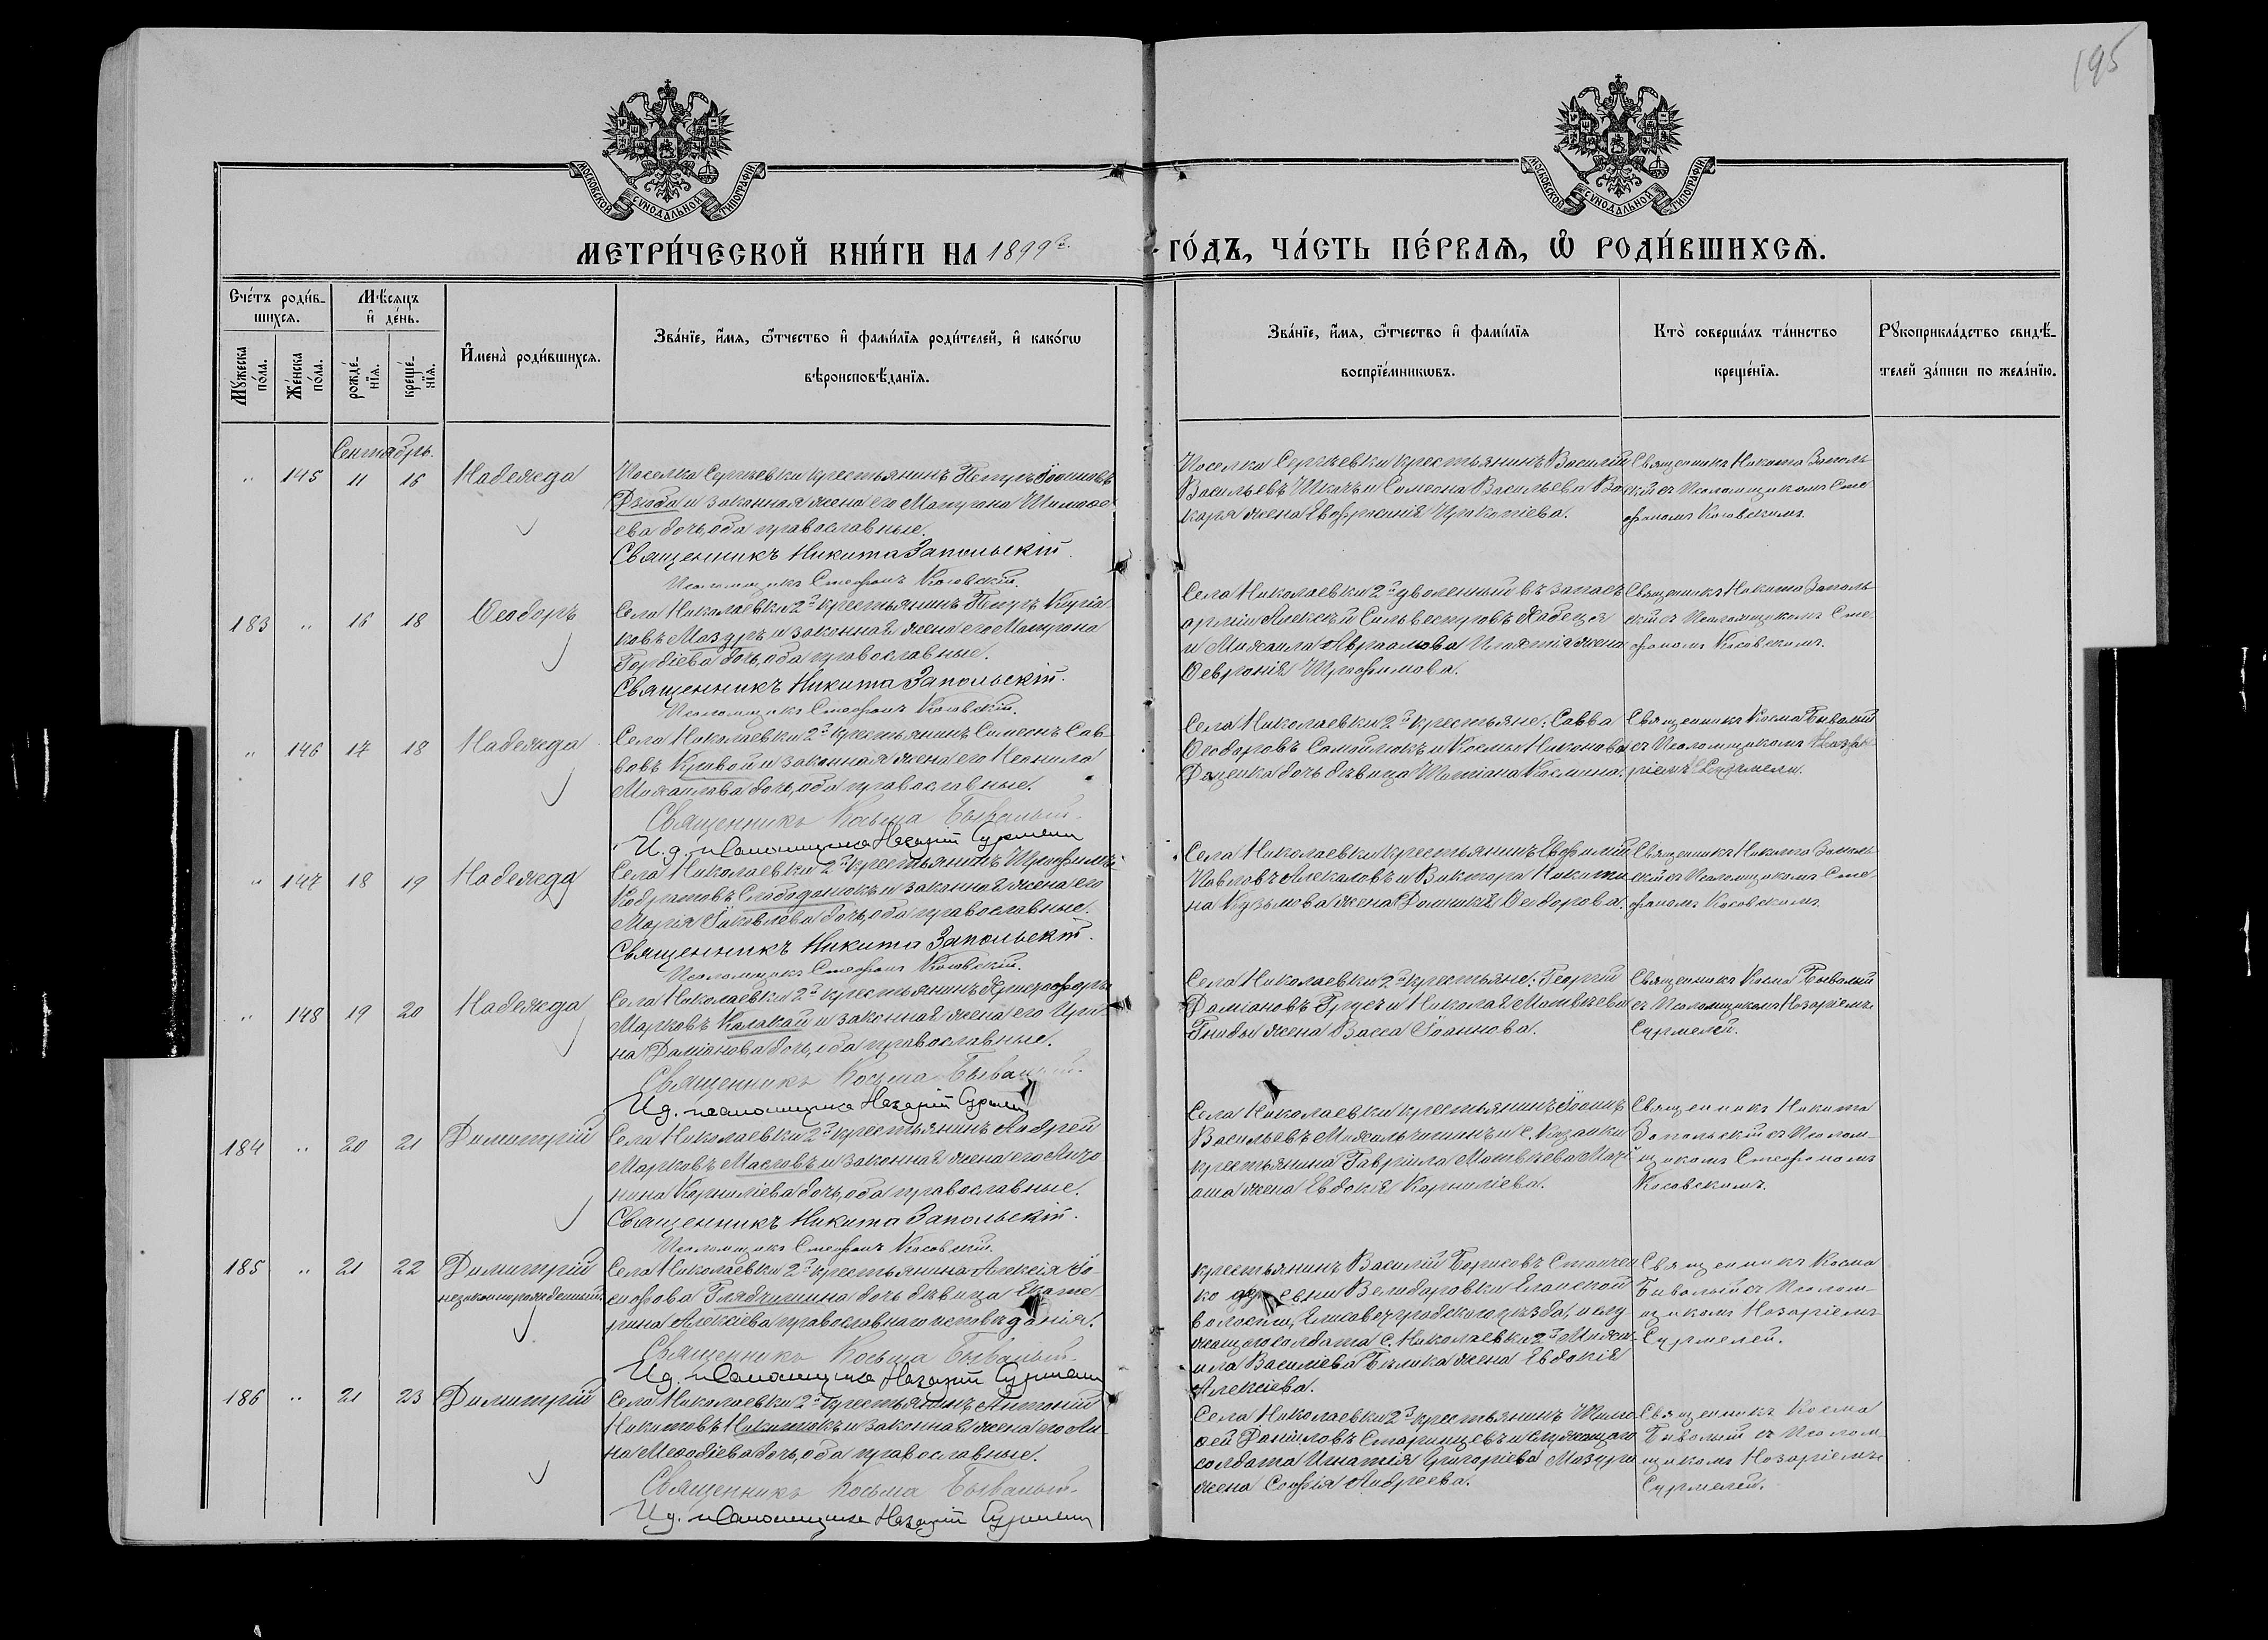 195
МОСКОВСКОЙ СУНОДАЛЬНОЙ ТИПОГРАФІИ
МОСКОВСКОЙ СУНОДАЛЬНОЙ ТИПОГРАФІИ
МЕТРИ́ЧЕСКОЙ КНИ́ГИ НА 1899й
ГО́ДЪ, ЧА́СТЬ ПЕ́РВАѦ, Ѡ҆ РОДИ́ВШИХСѦ.
Сче́тъ роди́в-
шихсѧ.
Мѣ́сѧцъ
и҆ де́нь.
Мꙋ́жеска
по́ла.
Же́нска
по́ла.
рожде́-
нїѧ.
креще́-
нїѧ.
И҆мена̀ роди́вшихсѧ.
Зва́нїе, и҆́мѧ, ѻ҆́тчество и҆ фами́лїѧ роди́телей, и҆ како́гѡ
вѣроисповѣ́данїѧ.
Зва́нїе, и҆́мѧ, ѻ҆́тчество и҆ фами́лїѧ
воспрїе́мникѡвъ.
Кто̀ соверша́лъ та́инство
креще́нїѧ.
Рꙋкоприкла́дство свидѣ́-
телей за́писи по жела́нїю.
Сентябрь.
" 145 11 16 Надежда
Поселка Сергѣевки крестьянинъ Петръ Іоанновъ
Дзюба и законная жена его Матрона Тимофе-
ева дочь, оба православные.
Священникъ Никита Запольскій.
Псаломщикъ Стефанъ Косовскій.
Поселка Сергѣевки крестьянинъ Василій
Васильевъ Ткачъ и Симеона Васильева
жена Евфросинія Прокопіева.
Священникъ Никита Заполь-
скій съ Псаломщикомъ Сте-
фаномъ Косовскимъ.
183 " 16 18 Ѳеодоръ
Села Николаевки 2й крестьянинъ Петръ Киріа-
ковъ Мазуръ и законная жена его Матрона
Гордіева дочь, оба православные.
Священникъ Никита Запольскій.
Псаломщикъ Стефанъ Косовскій.
Села Николаевки 2й уволенный въ запасъ
арміи Алексѣй Сильвестровъ
и Михаила Авраамова Игнатія жена
Февронія Трофимова.
Священникъ Никита Заполь-
скій съ Псаломщикомъ Сте-
фаномъ Косовскимъ.
" 146 17 18 Надежда
Села Николаевки 2й крестьянинъ Симеонъ Сав-
вовъ Кривой и законная жена его Неонила
Михаилова дочь, оба православные.
Священникъ Косьма Бывалый.
И. д. псаломщика Назарій Сурмели
Села Николаевки 2й крестьяне: Савва
Ѳеодоровъ Самойлюкъ и Космы Никонова
Доценка дочь дѣвица Татіана Космина.
Священникъ Косма Бывалый
съ Псаломщикомъ Наза-
ріемъ Сурмели.
" 147 18 19 Надежда
Села Николаевки 2й крестьянинъ Трофимъ
Кодратовъ Слободянюкъ и законная жена его
Марія Іаковлева дочь, оба православные.
Священникъ Никита Запольскій.
Псаломщикъ Стефанъ Косовскій.
Села Николаевки крестьянинъ Евфимій
Павловъ Алекаловъ и Виктора Никити-
на Кузьмова жена Домникія Ѳеодорова.
Священникъ Никита Заполь-
скій съ Псаломщикомъ Сте-
фаномъ Косовскимъ.
" 148 19 20 Надежда
Села Николаевки 2й крестьянинъ Христофоръ
Марковъ Калакай и законная жена его Ири-
на Даміанова дочь, оба православные.
Священникъ Косьма Бывалый.
И. д. псаломщика Назарій Сурмели
Села Николаевки 2й крестьяне: Георгій
Даміановъ Гусъ и Николая Матвѣева
Гнады жена Васса Іоаннова.
Священникъ Косма Бывалый
съ Псаломщикомъ Назаріемъ
Сурмелей.
184 " 20 21 Димитрій
Села Николаевки 2й крестьянинъ Андрей
Марковъ Масловъ и законная жена его Анто-
нина Корниліева дочь, оба православные.
Священникъ Никита Запольскій.
Псаломщикъ Стефанъ Косовскій.
Села Николаевки крестьянинъ Іоаннъ
Васильевъ Михальчишинъ и с. Казанки
крестьянина Гавріила Матвѣева
жена Евдокія Корниліева.
Священникъ Никита
Запольскій съ Псалом-
щикомъ Стефаномъ
Косовскимъ.
185 " 21 22 Димитрій
незаконнорожденный.
Села Николаевки 2й крестьянина Алексія Іо-
сифова Глядчишина дочь дѣвица Екате-
рина Алексіева православнаго исповѣданія.
Священникъ Косьма Бывалый.
И. д. псаломщика Назарій Сурмели
крестьянинъ Василій Борисовъ
ко деревни Велидаровки Еланской
волости, Елисаветградскаго уѣзда, и слу-
жащаго солдата с. Николаевки 2й Миха-
ила Василіева Бѣлика жена Евдокія
Алексіева.
Священникъ Косма
Бывалый съ Псалом-
щикомъ Назаріемъ
Сурмелей.
186 " 21 23 Димитрій
Села Николаевки 2й крестьянинъ Антоній
Никитовъ Никитюкъ и законная жена его Ан-
на Меѳодіева дочь, оба православные.
Священникъ Косьма Бывалый.
И. д. псаломщика Назарій Сурмели
Села Николаевки 2й крестьянинъ Тимо-
ѳей Даніиловъ Старинцевъ и служащаго
солдата Игнатія Григоріева Мазура
жена Софія Андреева.
Священникъ Косма
Бывалый съ Псалом-
щикомъ Назаріемъ
Сурмелей.